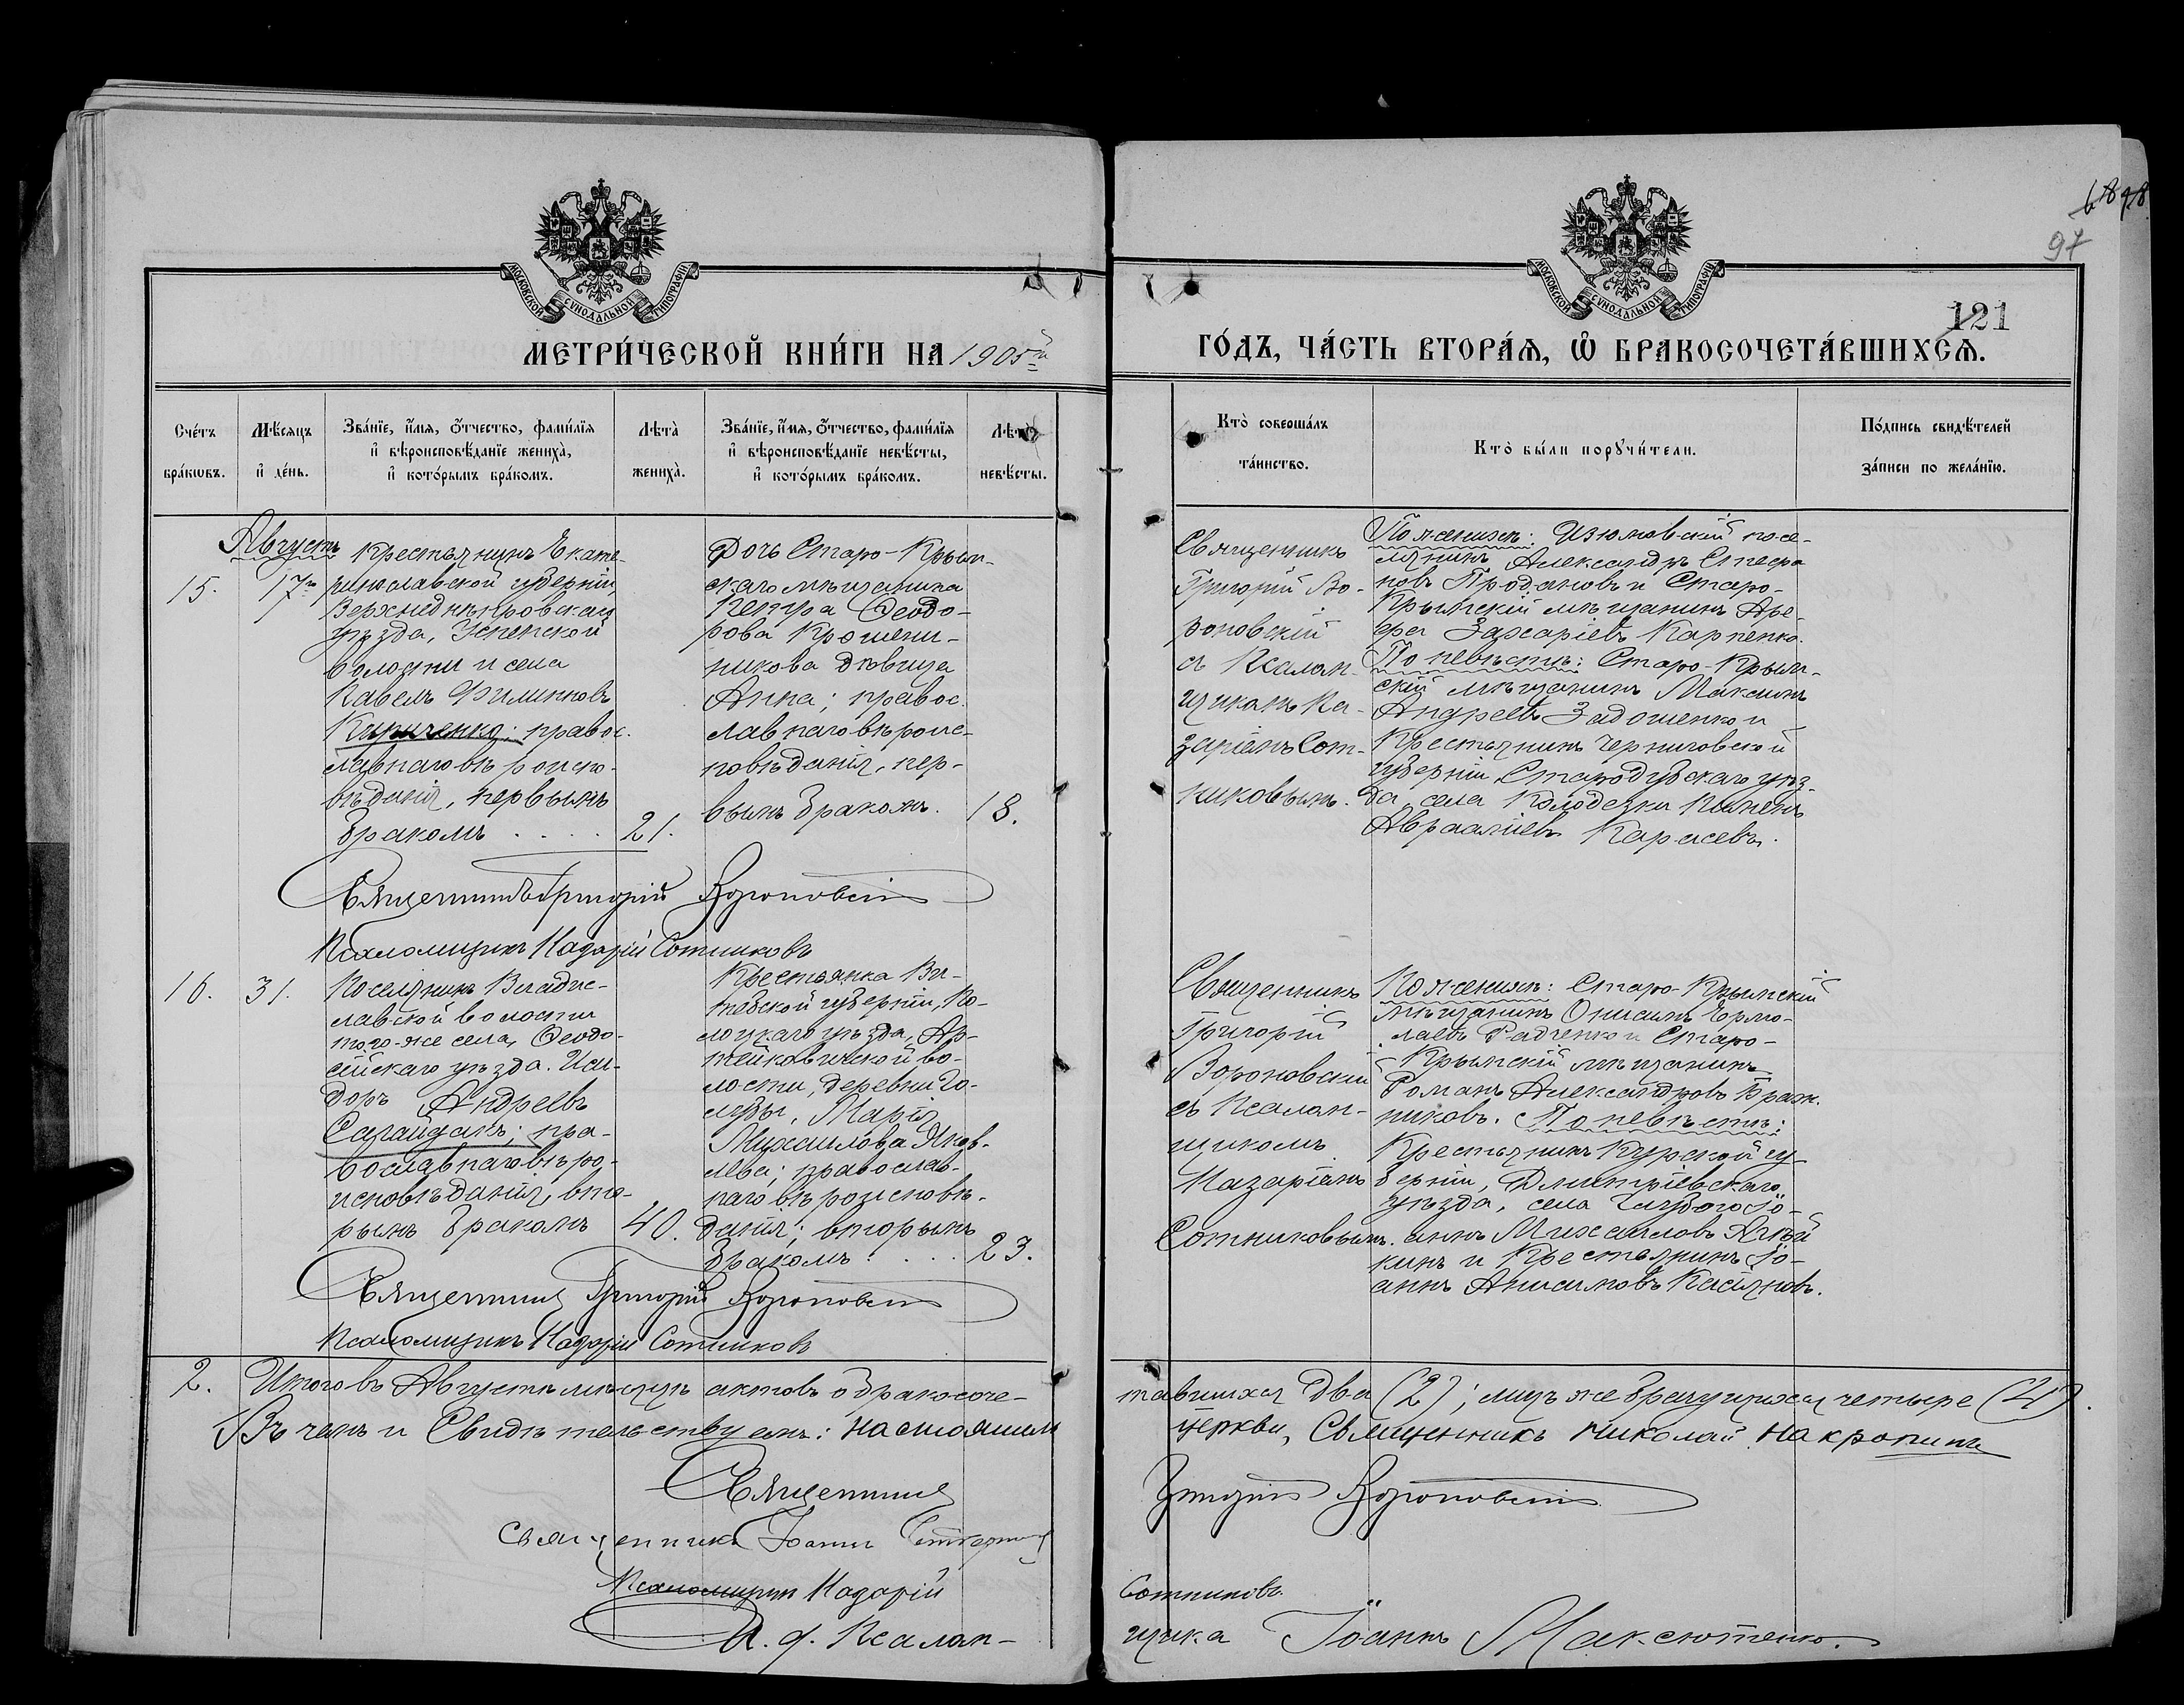 97
121
МОСКОВСКОЙ СѴНОДАЛЬНОЙ ТИПОГРАФІИ
МОСКОВСКОЙ СѴНОДАЛЬНОЙ ТИПОГРАФІИ
МЕТРИ́ЧЕСКОЙ КНИ́ГИ НА 1905й
ГО́ДЪ, ЧА́СТЬ ВТОРА́Ѧ, Ѡ҆ БРАКОСОЧЕТА́ВШИХСѦ.
Сче́тъ бра́кѡвъ.
Мѣ́сѧцъ и҆ де́нь.
Зва́нїе, и҆́мѧ, ѻ҆́тчество, фами́лїѧ и҆ вѣроисповѣ́данїе жениха̀, и҆ кото́рымъ бра́комъ.
Лѣта̀ жениха̀.
Зва́нїе, и҆́мѧ, ѻ҆́тчество, фами́лїѧ и҆ вѣроисповѣ́данїе невѣ́сты, и҆ кото́рымъ бра́комъ.
Лѣта̀ невѣ́сты.
Кто̀ соверша́лъ та́инство.
Кто̀ бы́ли порꙋчи́тели.
По́дпись свидѣ́телей за́писи по жела́нїю.
Августъ
15.
17го
Крестьянинъ Екате-
ринославской губерніи,
Верхнеднѣпровскаго
уѣзда, Успенской
волости и села
Павелъ Филипповъ
Кириченко; правос-
лавнаго вѣроиспо-
вѣданія, первымъ
бракомъ . . . .
21.
Дочь Старо-Крым-
скаго мѣщанина
Петра Ѳеодо-
рова Крошени-
никова дѣвица
Анна; правос-
лавнаго вѣроис-
повѣданія, пер-
вымъ бракомъ.
18.
Священникъ
Григорій Во-
роновскій
съ Псалом-
щикомъ На-
заріемъ Сот-
никовымъ.
По женихѣ: Изюмовскій посе-
лянинъ Александръ Стефа
новъ Продановъ и Старо-
Крымскій мѣщанинъ Аре-
фа Захаріевъ Карпенко.
По невѣстѣ: Старо-Крым-
скій мѣщанинъ Максимъ
Андреевъ Задошенко и
Крестьянинъ Черниговской
губерніи, Стародубскаго уѣз-
да, села Колодезки Пименъ
Авраамiевъ Карасевъ.
Священникъ Григорій Вороновскій
Псаломщикъ Назарій Сотниковъ
16.
31.
Поселянинъ Владис-
лавской волости
того-же села, Ѳеодо-
сійскаго уѣзда. Иси-
доръ Андреевъ
Сагайдакъ; пра-
вославнаго вѣро-
исповѣданія, вто-
рымъ бракомъ
40.
Крестьянка Ви-
тебской губерніи, По-
лоцкаго уѣзда, Ар-
тейковичской во-
лости, деревни Го-
лубы, Марія
Михаилова Яков-
лева; православ-
наго вѣроисповѣ-
данія; вторымъ
бракомъ . . . .
23.
Священникъ
Григорій
Вороновскій
съ Псалом-
щикомъ
Назаріемъ
Сотниковымъ.
По женихѣ: Старо-Крымскій
мѣщанинъ Онисимъ Ермо-
лаевъ Радченко и Старо-
Крымскій мѣщанинъ
Романъ Александровъ Браж-
никовъ. По невѣстѣ:
Крестьянинъ Курской гу-
берніи, Дмитріевскаго
уѣзда, села Іо-
аннъ Михаиловъ
кинъ и Крестьянинъ Іо-
аннъ Анисимовъ Касьяновъ.
Священникъ Григорій Вороновскій
Псаломщикъ Назарій Сотниковъ
2. Итого въ Августѣ мѣсяцѣ актовъ о бракосоче-
тавшихся два (2); лицъ же брачущихся четыре (4).
Въ чемъ и Свидѣтельствуемъ: Настоятель
церкви, Священникъ Николай Накропинъ
Священникъ
Григорій Вороновскій
Священникъ Іоаннъ
Псаломщикъ Назарій
Сотниковъ.
И. д. Псалом-
щика Іоаннъ Максютенко.